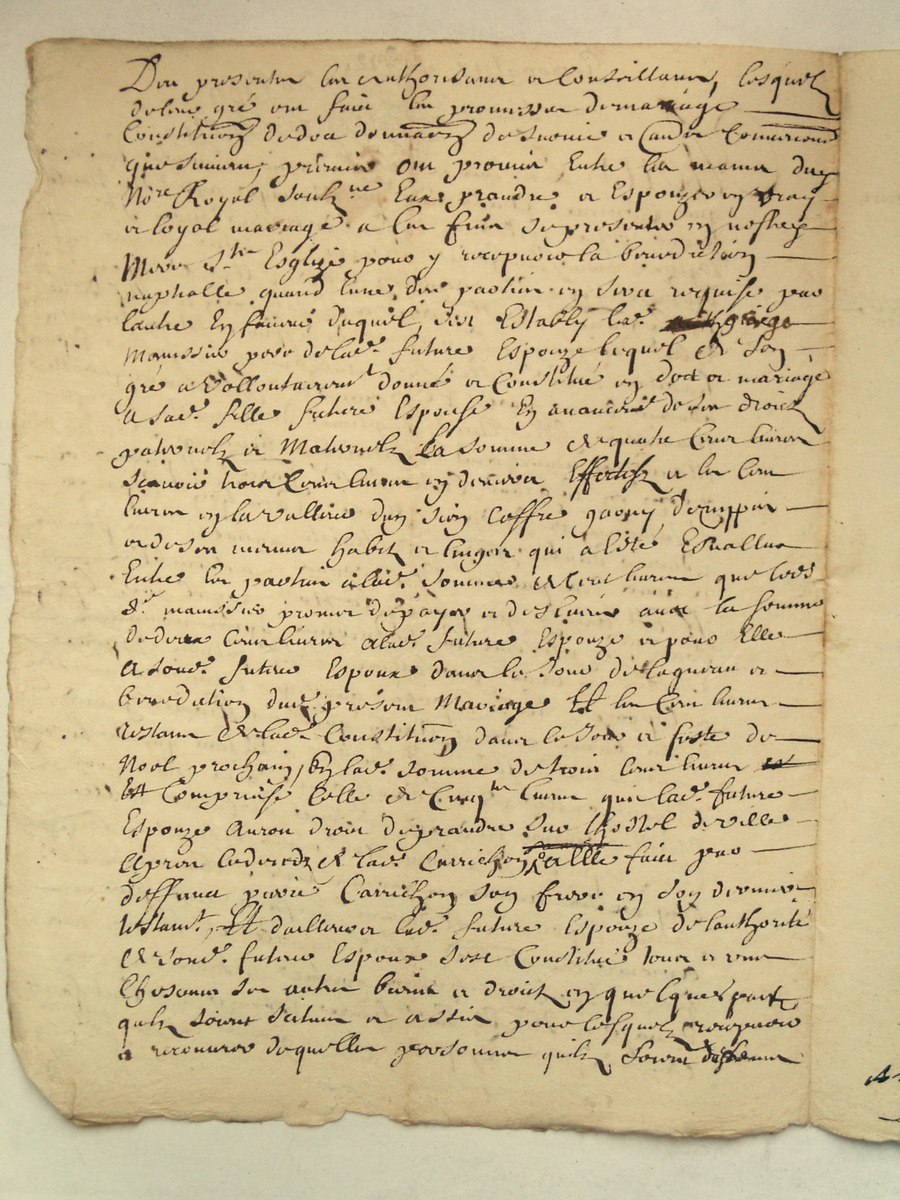 Don presenter les authorisans et Conseillans, lesquelz
de leur gré ont faict les promesses de mariage
Constitution de dot donnations de survie et autres Conventions
que suivent, premier ont promis Entre les mains du
No.re Royal soubz.ne Eux prandre et Espouzer en vray
et loyal mariage a ces fins se presenter en nostre
Mere S.te Esglize pour y recepvoir la benediction
nuptialle quand l'une des parties en sera requise par
lautre En faveur duquel, sest Estably led.
Manissier pere de lad. future Espouze lequel de son
gré a vollontairem.t donné et Constitué en dot et mariage
a sad. fille future Espouse En avancem.t de ses droictz
paternelz et Maternelz la somme de quatre Cens livres
scavoir trois Cens livres en deniers Effectifz et les Cent
livres en la valleur dun sien Coffre garny
et de ses menus habitz et linges qui a esté Esvallué
Entre les parties a lad. somme de Cent livres que led.
S.r manissier promet de payer et descuire avec la somme
de deux Cens livres a lad. future Espouze et pour Elle
a sond. future Espoux dans le Jour de
benediction dud. présent Mariage Et les Cent livres
restans de lad. Constitution dans le Jour et feste de
Noel prochain, En lad. somme de trois Cens livres
Comprinse celle de Cinq.te livres que lad. future
Espouze auroit droict de prandre sur lhostel de ville
apres le deces de lad. Carrichon, a Elle faict par
deffunct pierre Carrichon son frere en son dernier
testam.t, Et dailleurs lad. future Espouze de lauthorité
de sond. future Espoux sest Constitué tous et uns
Chescuns ses autres biens et droictz en quelques partz
quilz soient scitues et assis pour lesquelz recepvoir
et recouvrer de quelles personnes quilz soient